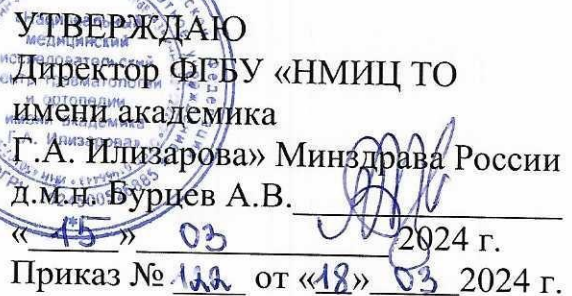 УТВЕРЖДАЮ
Директор ФГБУ «НМИЦ ТО
имени академика
Г.А. Илизарова» Минздрава России
д.м.н. Бурцев А.В.
«15» 03 2024 г.
Приказ № 122 от «18» 03 2024 г.